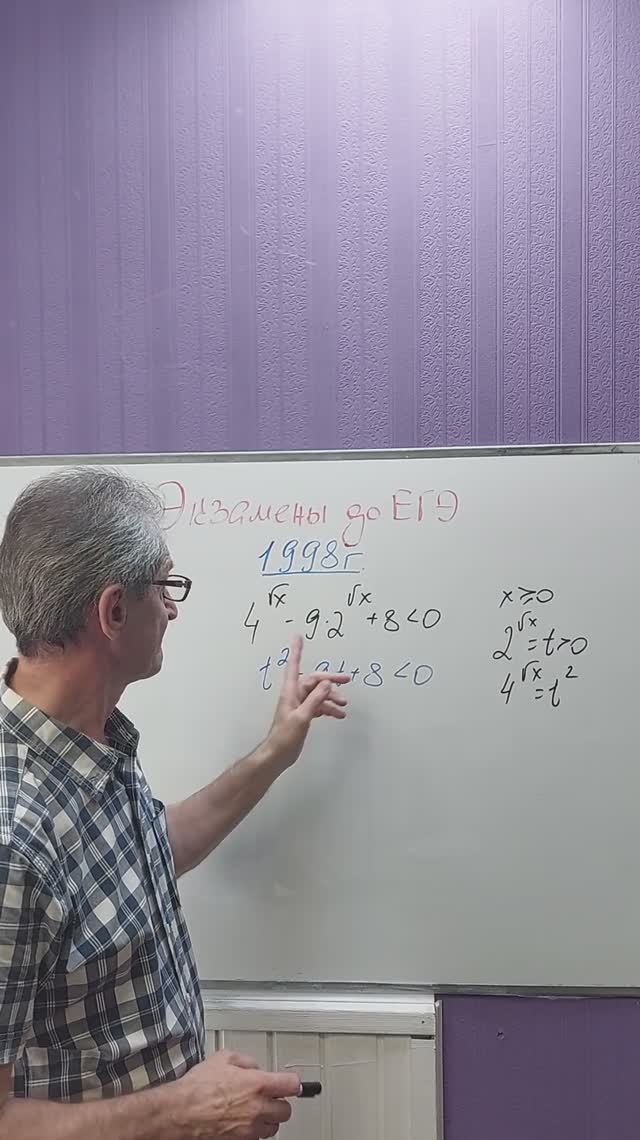 Экзамены до ЕГЭ
1998г.
4^√x - 9·2^√x + 8 < 0
t² - 9t + 8 < 0
x ⩾ 0
2^√x = t > 0
4^√x = t²